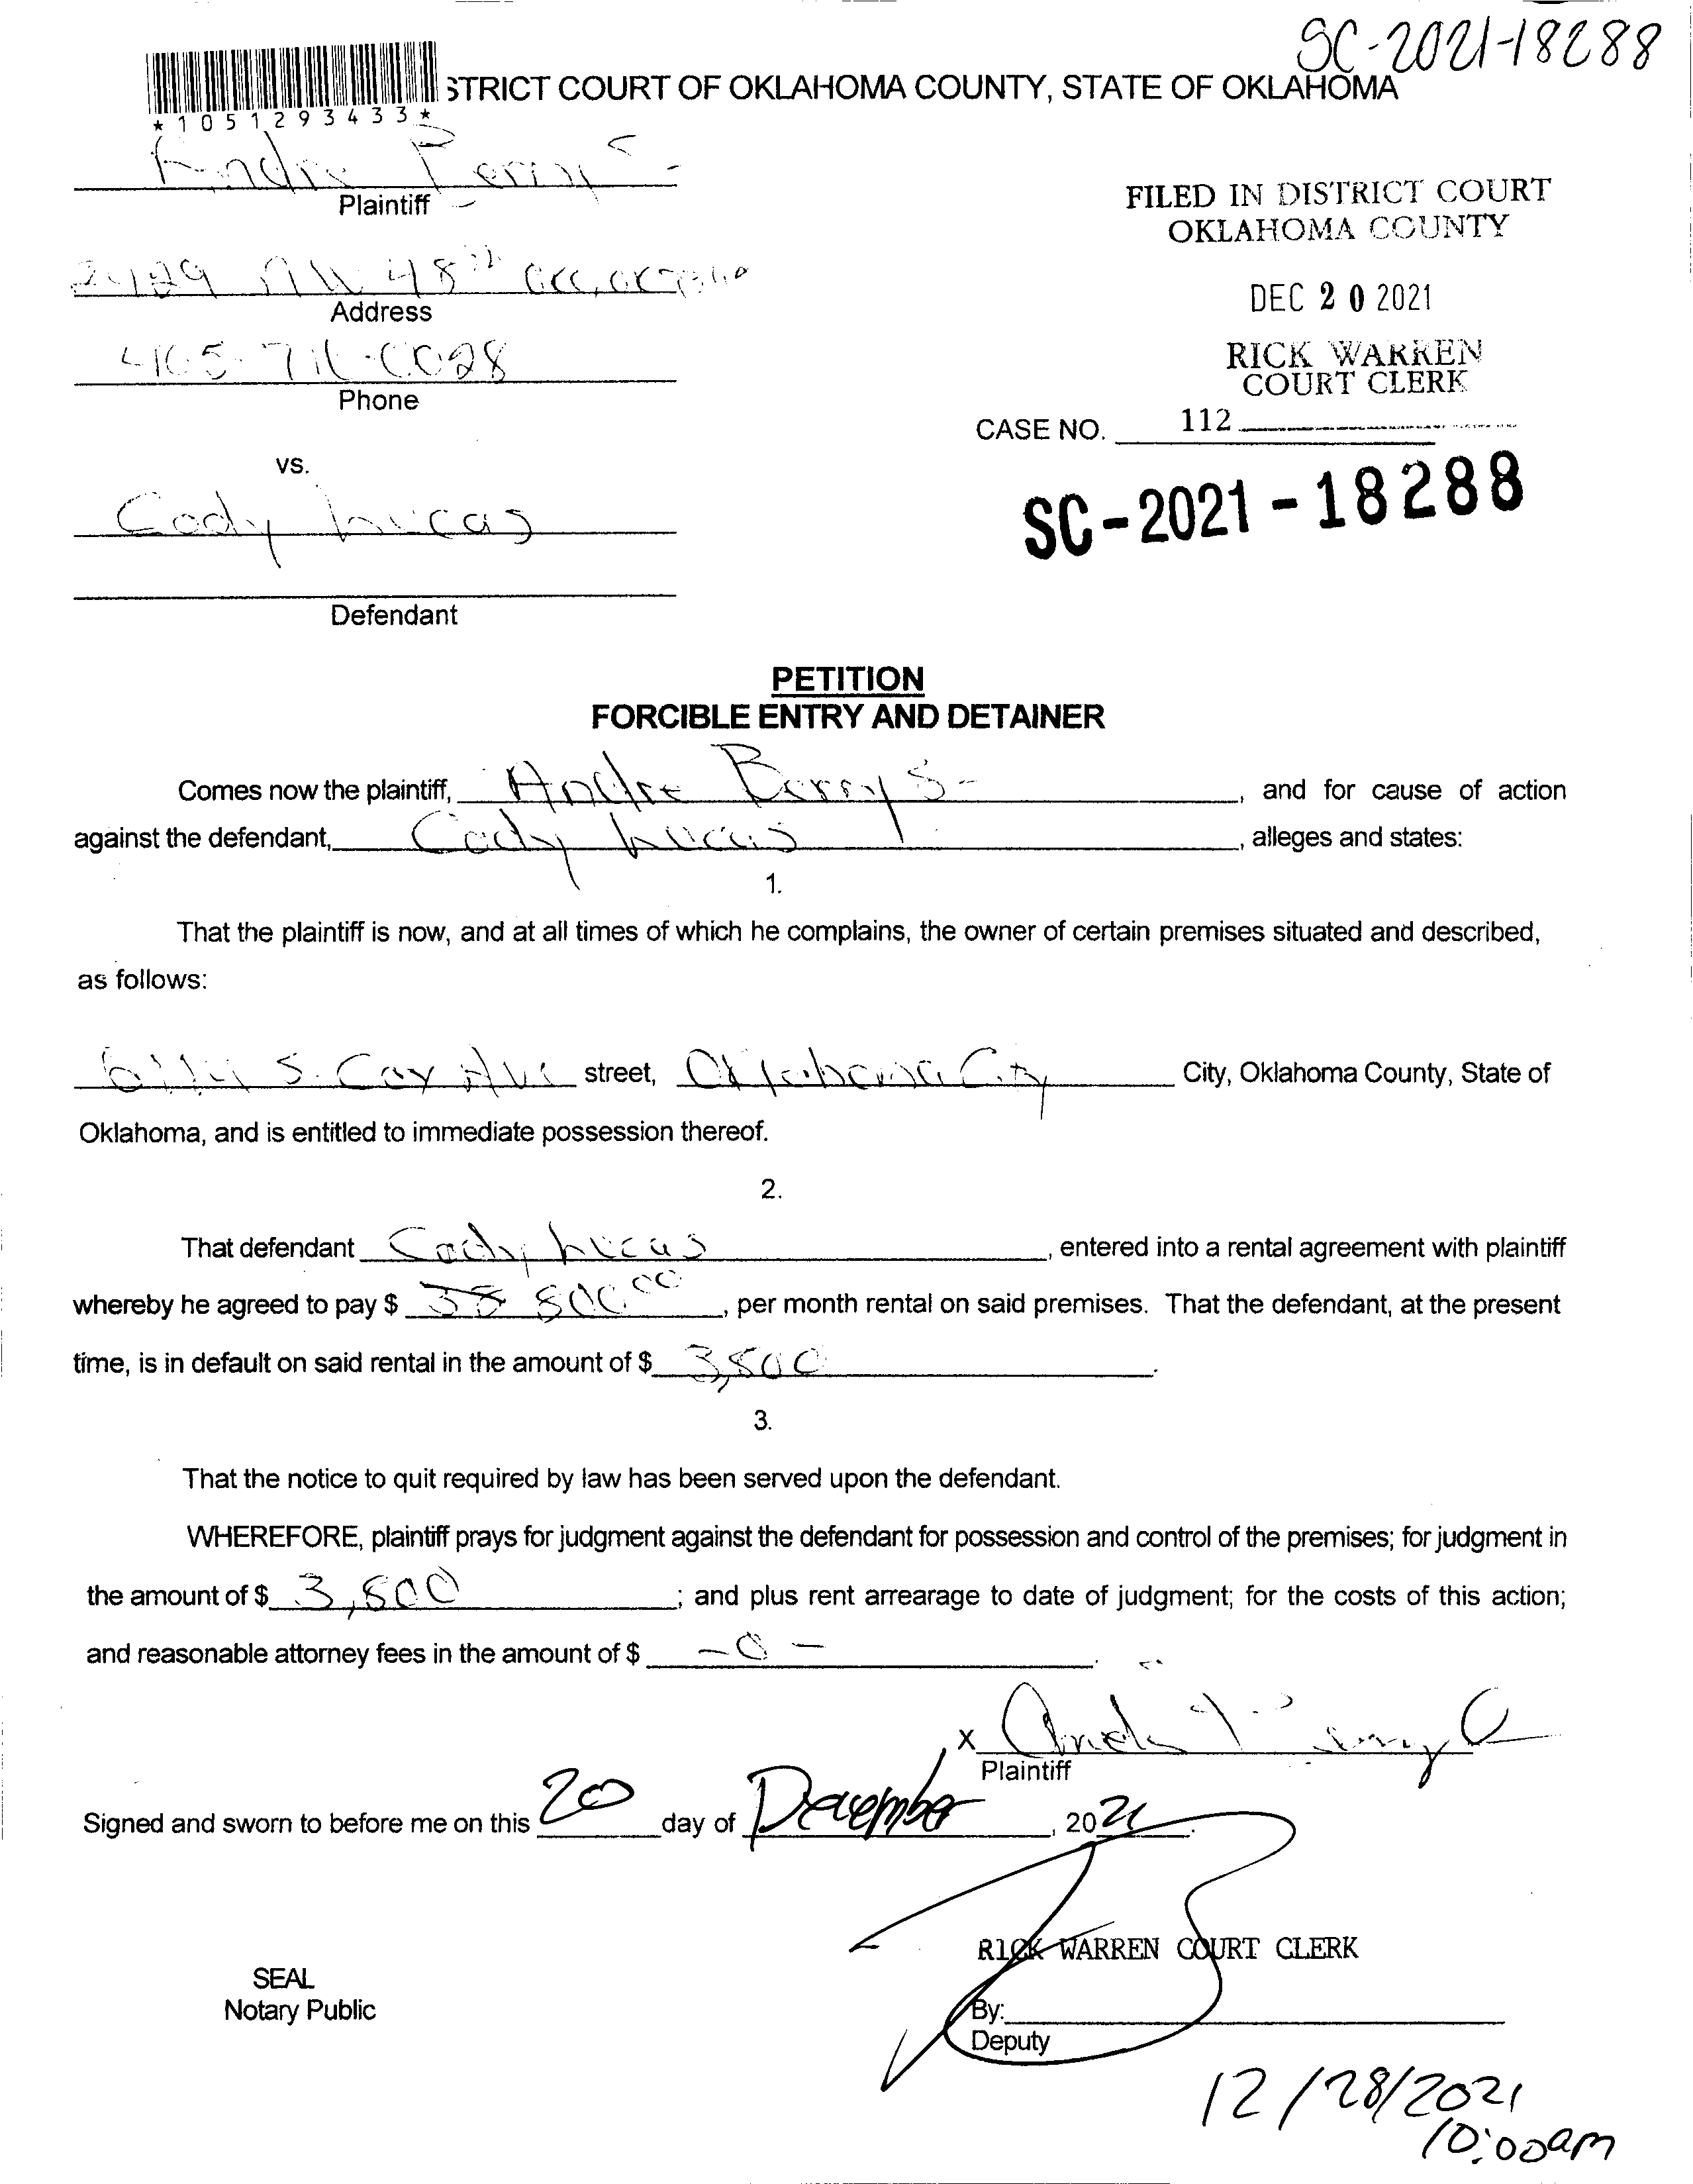 SC-2021-18288
STRICT COURT OF OKLAHOMA COUNTY, STATE OF OKLAHOMA
*1051293433*
Andre
Plaintiff
FILED IN DISTRICT COURT
OKLAHOMA COUNTY
2429 NW 48th
Address
DEC 20 2021
Phone
RICK WARREN
COURT CLERK
CASE NO. 112
vs.
Cody Lucas
SC-2021-18288
Defendant
PETITION
FORCIBLE ENTRY AND DETAINER
Comes now the plaintiff, Andre Berry S-, and for cause of action
against the defendant, Cody Lucas, alleges and states:
1.
That the plaintiff is now, and at all times of which he complains, the owner of certain premises situated and described,
as follows:
S. Coy Ave street, Oklahoma City City, Oklahoma County, State of
Oklahoma, and is entitled to immediate possession thereof.
2.
That defendant Cody Lucas, entered into a rental agreement with plaintiff
whereby he agreed to pay $ 800.00, per month rental on said premises. That the defendant, at the present
time, is in default on said rental in the amount of $ 3,800.
3.
That the notice to quit required by law has been served upon the defendant.
WHEREFORE, plaintiff prays for judgment against the defendant for possession and control of the premises; for judgment in
the amount of $ 3,800; and plus rent arrearage to date of judgment; for the costs of this action;
and reasonable attorney fees in the amount of $ -0-.
X
Plaintiff
Signed and sworn to before me on this 20 day of December, 2021.
RICK WARREN COURT CLERK
SEAL
Notary Public
By:
Deputy
12/28/2021
10:00am